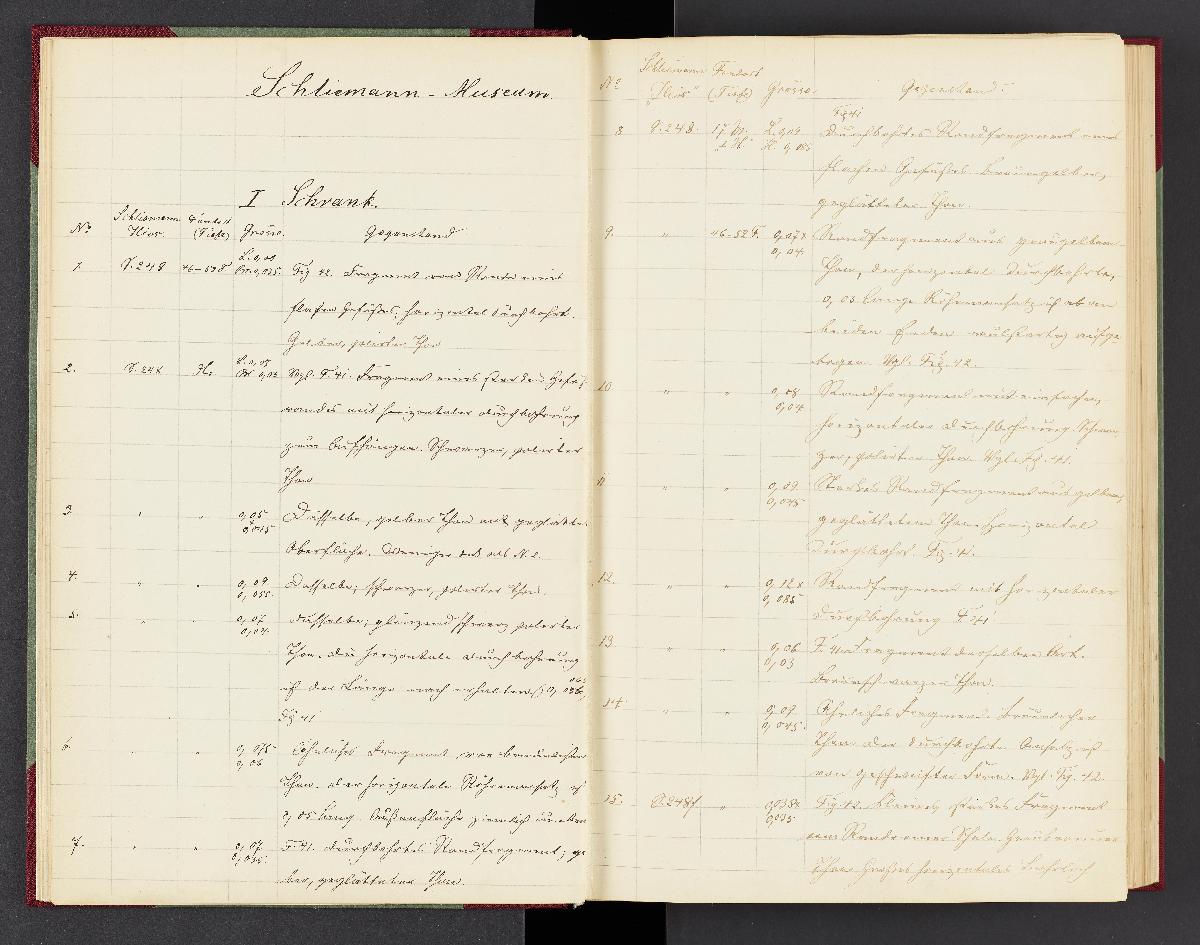 Schliemann-Museum.
I Schrank.
No. Schliemann Ilios. Fundort (Tiefe) Grösse. Gegenstand
1. S. 248 46–52 F. L. 0,08 Br. 0,025. Fig 42. Fragment vom Rande eines
flachen Gefäßes, horizontal durchbohrt.
polirter Thon
2. S. 248 L. 0,07 Vgl. F. 41. Fragment eines Gefäß-
randes mit horizontaler Durchbohrung
zum Aufhängen. Schwarzer, polirter
Thon
3. " " 0,05 0,045 Dasselbe, gelber Thon mit geglätteter
Oberfläche. Weniger als N. 2.
4. " " 0,09 0,055. Dasselbe; schwarzer, polirter Thon.
5. " " 0,07 0,04. Dasselbe; glänzend schwarz polirter
Thon. Die horizontale Durchbohrung
ist der Länge nach erhalten
Fig 41
6. " " 0,075 0,06 Ähnliches Fragment, von bräunlichem
Thon. Der horizontale Röhrenansatz ist
0,05 lang. Außenfläche ziemlich uneben
7. " " 0,07 0,035. F. 41. Durchbohrtes Randfragment; gel-
ber, geglätteter Thon.
No. Schliemann "Ilios" Fundort (Tiefe) Grösse. Gegenstand.
Fig 41
8 S. 248. L. 0,09 Durchbohrtes Randfragment eines
flachen Gefäßes. Bräungelber,
geglätteter Thon.
9. " 46–52 F. 0,07 0,04. Randfragment aus graugelbem
Thon, der horizontal durchbohrte,
0,03 lange Röhrenansatz ist an
beiden Enden wulstartig aufge-
bogen. Vgl. Fig. 42.
10 " " 0,08 0,04 Randfragment mit einfacher,
horizontaler Durchbohrung. Schwar-
zer, polirter Thon. Vgl. Fig. 41.
11 " " 0,09. 0,045 Starkes Randfragment aus gelbem,
geglättetem Thon. Horizontal
durchbohrt. Fig. 41.
12. " " 0,12 0,085 Randfragment mit horizontaler
Durchbohrung F. 41
13. " " 0,06 0,03 F. 41. Fragment derselben Art.
Braunschwarzer Thon.
14. " " 0,09. 0,045. Ähnliches Fragment. Bräunlicher
Thon. Der durchbohrte Ansatz ist
von geschweifter Form. Vgl. Fig. 42.
15. S. 248 " 0,035 Fig 42. Kleines, starkes Fragment
vom Rande einer Schale. Graubrauner
Thon. Großes horizontales Bohrloch